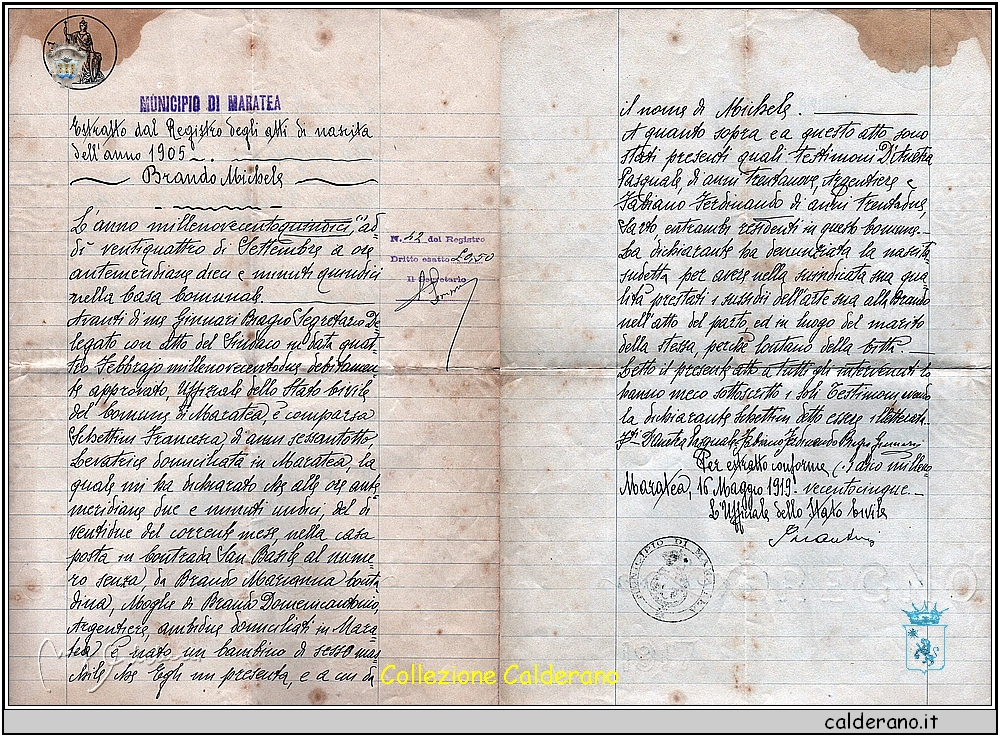 MUNICIPIO DI MARATEA
Estratto dal Registro degli atti di nascita
dell'anno 1905
Brando Michele
L'anno millenovecentoquindici, ad-
dì ventiquattro di Settembre a ore
antemeridiane dieci e minuti quindici
nella casa Comunale.
Avanti di me Ginnari Biagio Segretario De-
legato con atto del Sindaco in data quat-
tro Febbrajo millenovecentodue debitamen-
te approvato, Uffiziale dello Stato Civile
del Comune di Maratea, è comparsa
Schettini Francesca, di anni sessantotto,
Levatrice domiciliata in Maratea, la
quale mi ha dichiarato che alle ore ante-
meridiane due e minuti undici, del dì
ventidue del corrente mese, nella casa
posta in Contrada San Basile al nume-
ro senza, da Brando Mariannia Conta-
dina, Moglie di Brando Domenicantonio
Argentiere, ambidue domiciliati in Mara-
tea, è nato un bambino di sesso mas-
chile che Egli mi presenta, e a cui dà
N. 42 del Registro
Dritto esatto £ 0,50
Il Segretario
il nome di Michele.
A quanto sopra e a questo atto sono
stati presenti quali testimoni D'Amelia
Pasquale di anni trentanove, Argentiere e
Fabiano Ferdinando di anni trentadue,
Sarto, entrambi residenti in questo Comune.
La dichiarante ha denunziata la nascita
sudetta per avere nella susindicata sua qua-
lità prestati i sussidi dell'arte sua alla Brando
nell'atto del parto, ed in luogo del marito
della stessa, perché lontano della Città.
Letto il presente atto a tutti gli intervenuti lo
hanno meco sottoscritto i soli Testimoni avendo
la dichiarante Schettini detto essere illetterata.
Pasquale, Fabiano Ferdinando, Biagio Ginnari
Per estratto conforme (.) dico milleno-
Maratea, 16 Maggio 1919. vecentocinque.
L'Uffiziale dello Stato Civile
MUNICIPIO DI MARATEA
Collezione Calderano
calderano.it